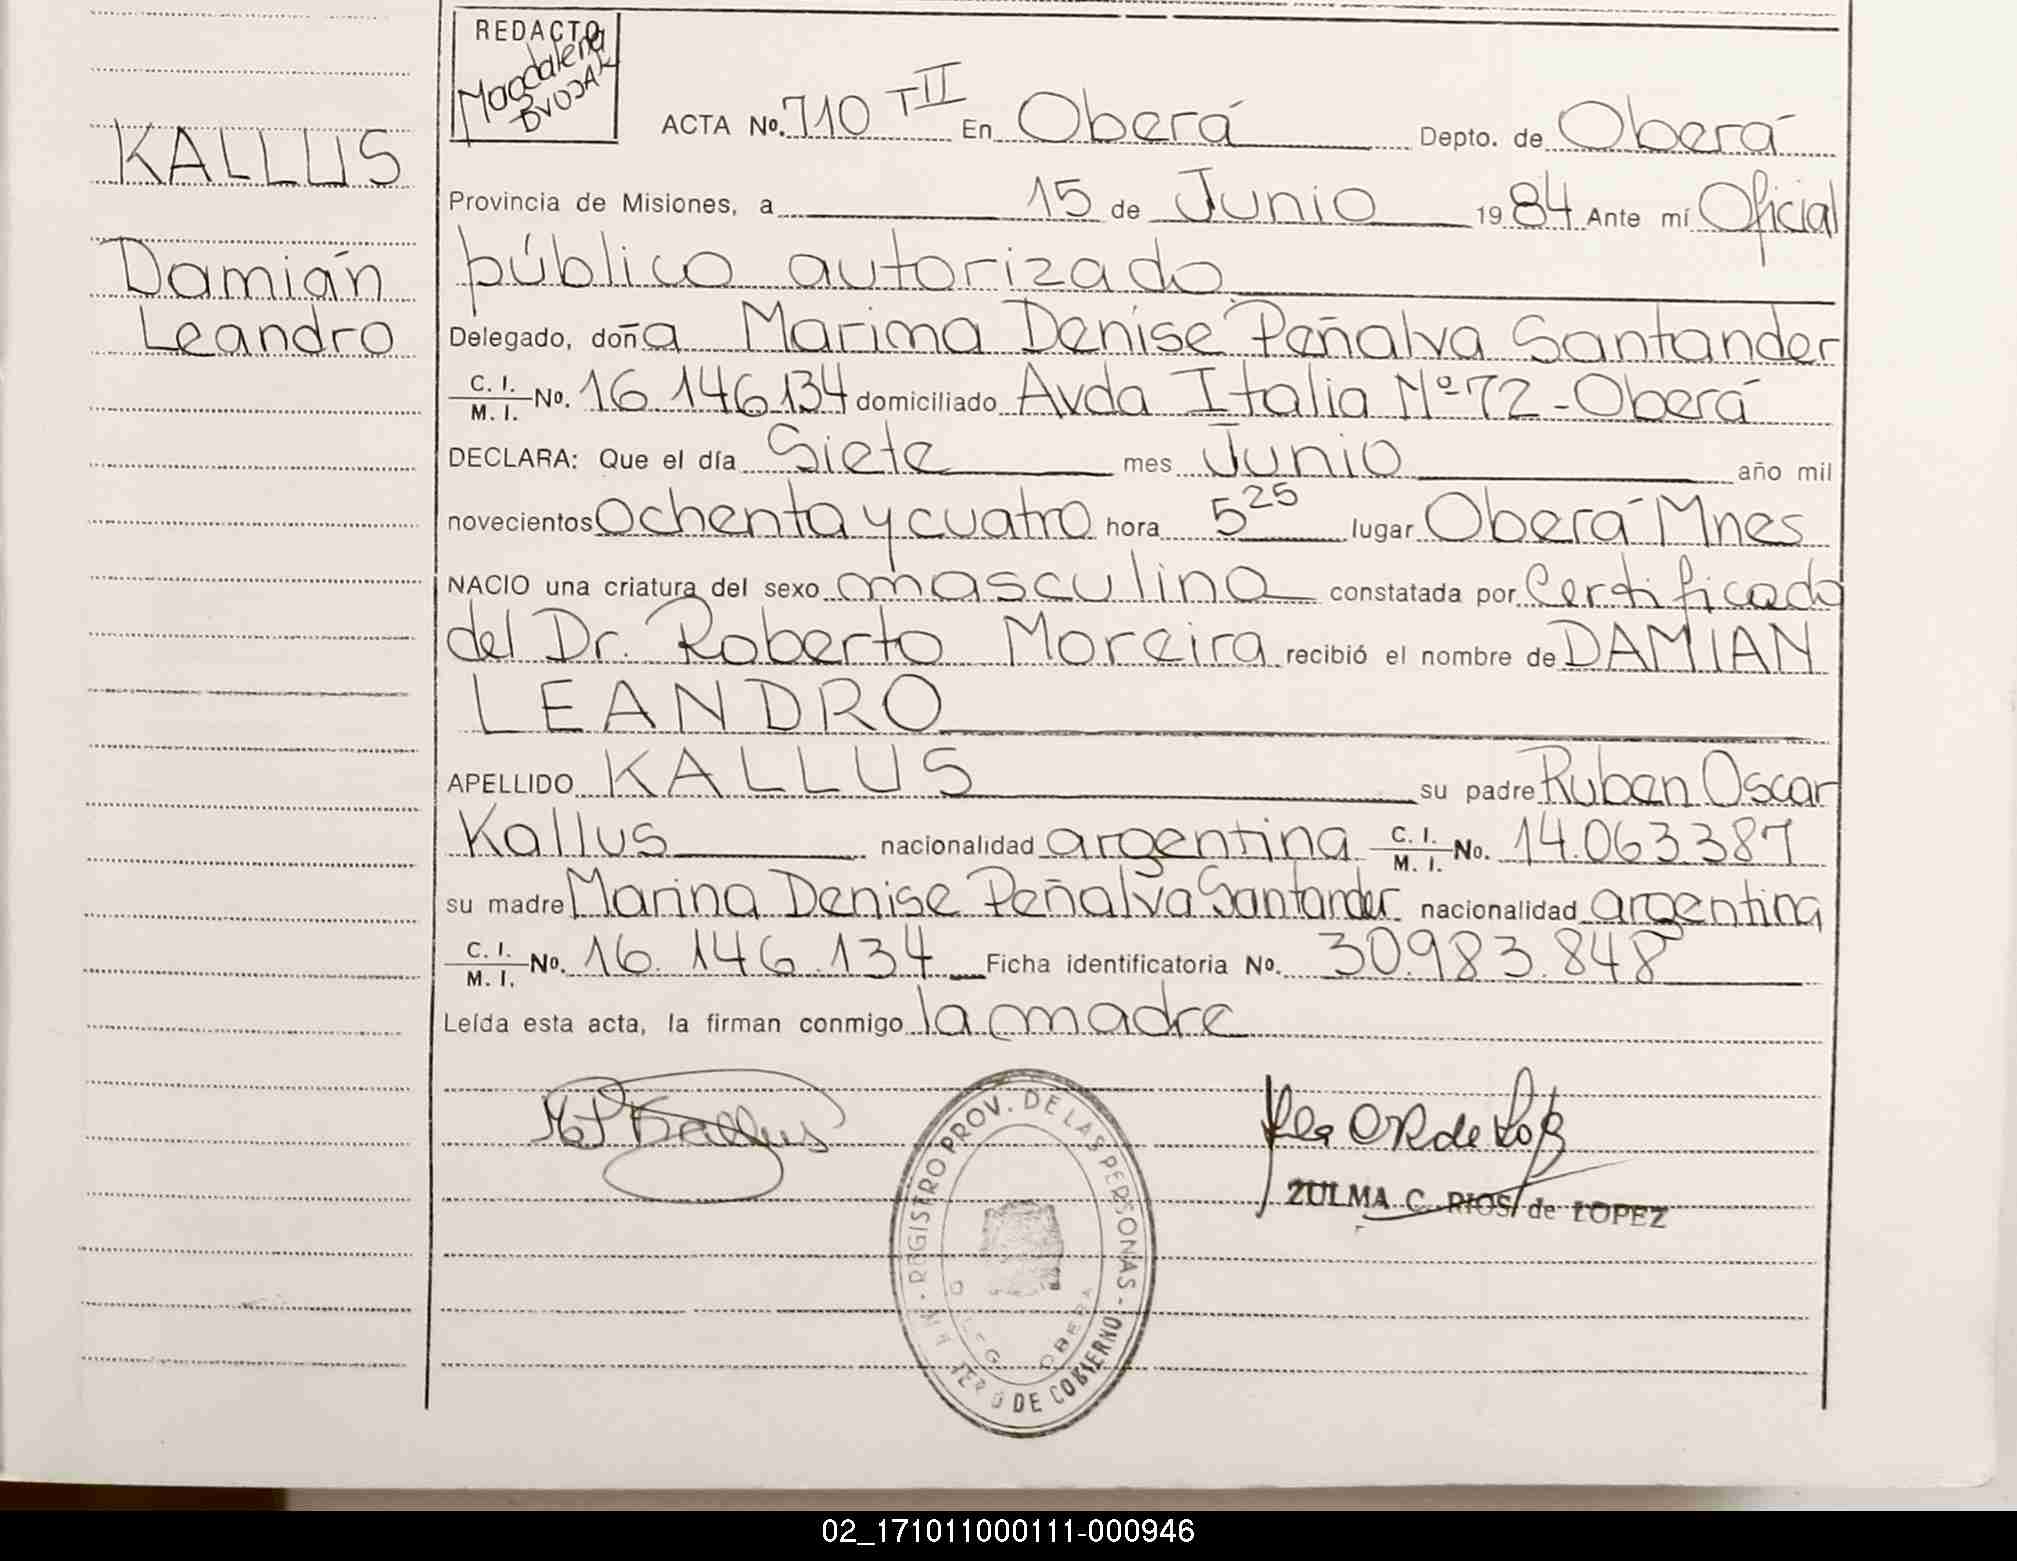 REDACTO
Magdalena
BVUJAK
ACTA No. 710 TII En Oberá Depto. de Oberá
KALLUS
Provincia de Misiones, a 15 de Junio 1984 Ante mí Oficial
Damián
público autorizado
Leandro
Delegado, doña Marina Denise Peñalva Santander
C. I. / M. I. No. 16.146.134 domiciliado Avda Italia Nº 72 - Oberá
DECLARA: Que el día Siete mes Junio año mil
novecientos ochenta y cuatro hora 5 25 lugar Oberá Mnes
NACIO una criatura del sexo masculino constatada por Certificado
del Dr. Roberto Moreira recibió el nombre de DAMIAN
LEANDRO
APELLIDO KALLUS su padre Ruben Oscar
Kallus nacionalidad argentina C. I. / M. I. No. 14.063.387
su madre Marina Denise Peñalva Santander nacionalidad argentina
C. I. / M. I. No. 16.146.134 Ficha identificatoria No. 30.983.848
Leída esta acta, la firman conmigo la madre
REGISTRO PROV. DE LAS PERSONAS - DE GOBIERNO
DELEG OBERA
ZULMA C. RIOS de LOPEZ
02_171011000111-000946